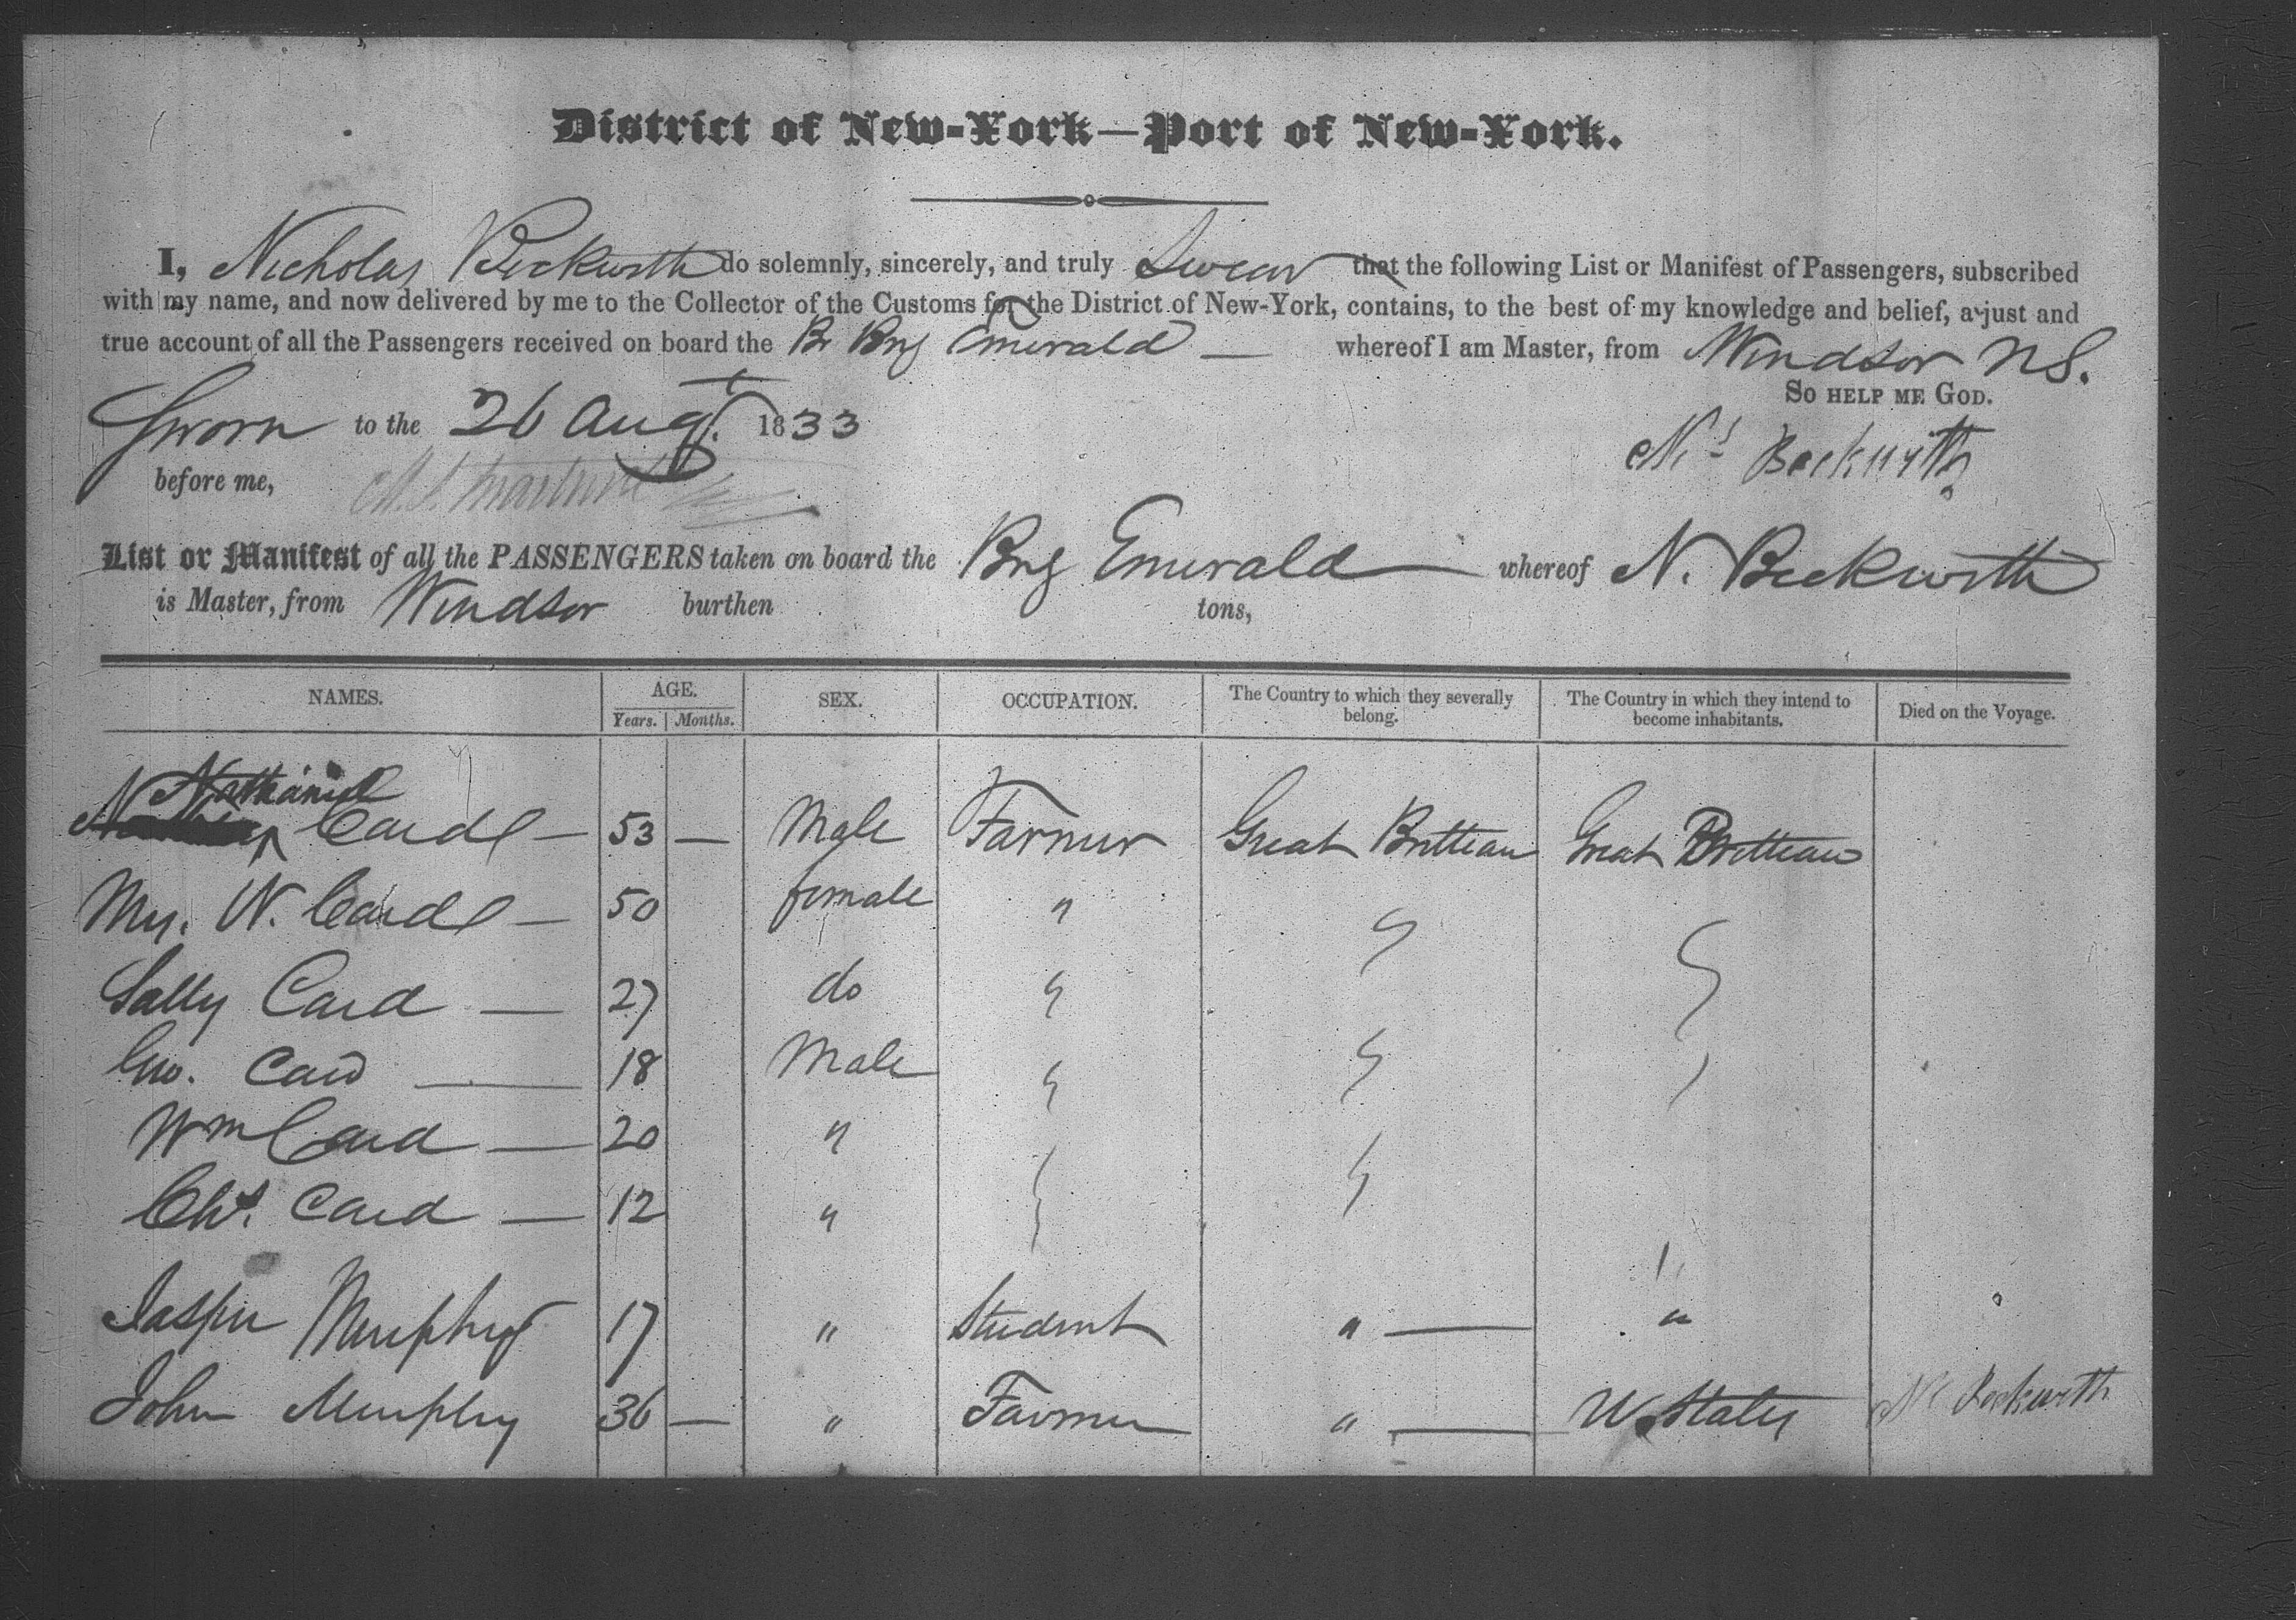 District of New-York—Port of New-York.
I, Nicholas Beckwith do solemnly, sincerely, and truly Swear that the following List or Manifest of Passengers, subscribed
with my name, and now delivered by me to the Collector of the Customs for the District of New-York, contains, to the best of my knowledge and belief, a just and
true account of all the Passengers received on board the Br Brig Emerald — whereof I am Master, from Windsor N S.
So help me God.
Sworn to the 26 Augt. 1833
Ns Beckwith
before me,
List or Manifest of all the PASSENGERS taken on board the Brig Emerald — whereof N. Beckwith
is Master, from Windsor burthen tons,
NAMES. AGE. SEX. OCCUPATION. The Country to which they severally belong. The Country in which they intend to become inhabitants. Died on the Voyage.
Years. Months.
Nathaniel
Card — 53 — Male Farmer Great Brittian Great Brittian
Mrs. N. Card — 50 female "
Sally Card — 27 do "
Geo. Card — 18 Male "
Wm Card — 20 "
Chs. Card — 12 "
Jasper Murphy 17 " Student " — "
John Murphy 36 — " Farmer " — U. States N Beckwith